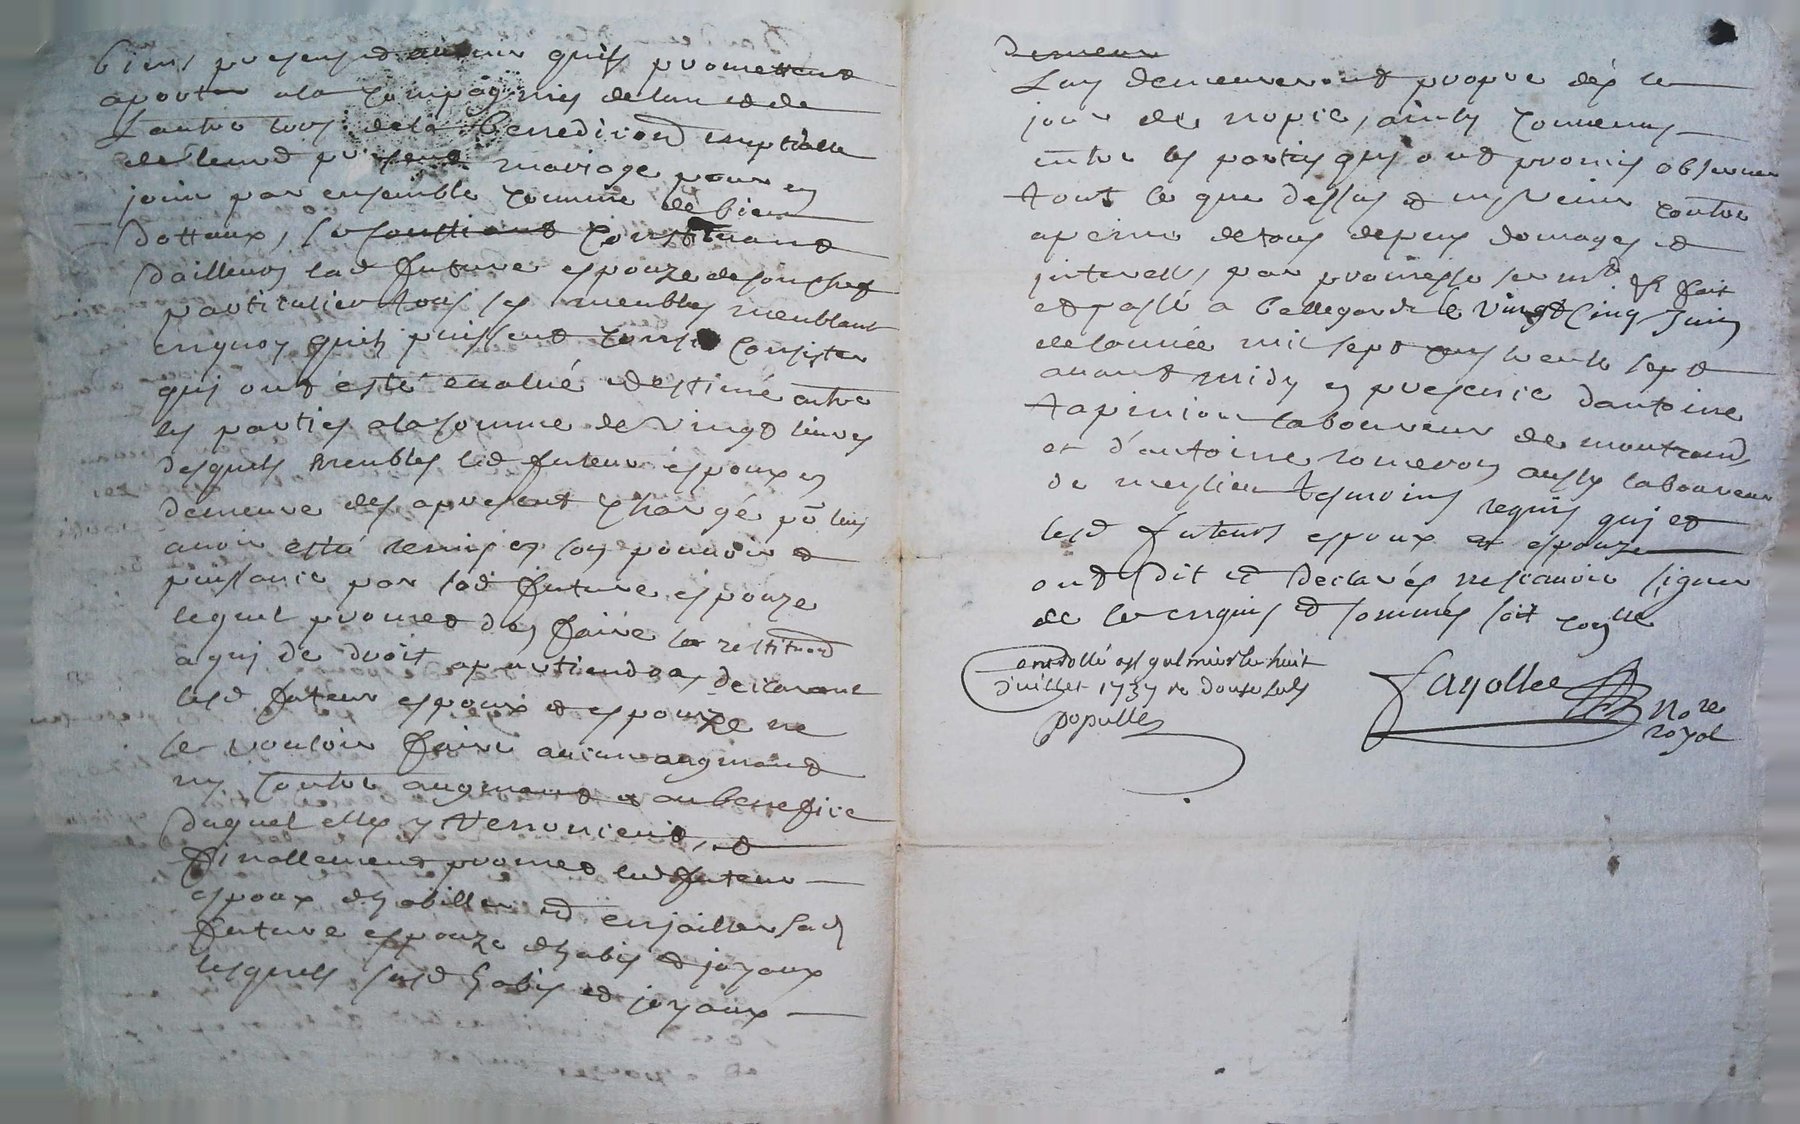 biens presens et advenir quils promettent
aporter a la compagnies de lun et de
Lautre lors de la benedicond nuptialle
de leurd present mariage pour en
jouir par ensemble comme de biens
dottaux, se constituant
dailleurs lad future espouze de son chef
particulier tous ses meubles meublant
en quoy quils puissent consister
qui ont esté evalué et estimé entre
les parties a la somme de vingt livres
desquels meubles led futeur espoux en
demeure des apresent chargé pr leurs
avoir esté remis en son pouvoir et
puissance par lad future espouze
lequel promet den faire la restitutiond
a qui de droit apartiendra, declarant
lesd futeur espoux et espouze ne
se vouloir faire aucun augmand
ny contre augmand au beneffice
duquel elles y renoncent, et
finallement promet led futeur
espoux dhabiller et enjoiller sad
future espouze dhabis et joyaux
lesquels susd habis et joyaux
demeur
Luy demeureront propre dés le
jour de nopce, ainsy convenus
entre les parties quy ont promis observer
tout ce que dessus et ny venir contre
a peine de tous depens domages et
interests, par promesse sermt &c fait
et passé a bellegarde le vingt cinq Juin
de lannée mil sept cens trente sept
avant midy en presence dantoine
tapinion laboureur de montrond
et d'antoine romeron aussy laboureur
de meylieu tesmoins requis qui et
lesd futeurs espoux et espouze
ont dit et declarés ne scavoir signer
de ce enquis et sommés soit controllé
controllé a st galmier le huit
Juillet 1737 rc douze sols
populle
fayolle Nore
royal